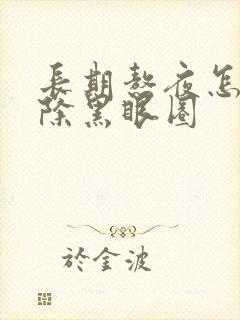 長期熬夜怎
除黑眼圈
於金波